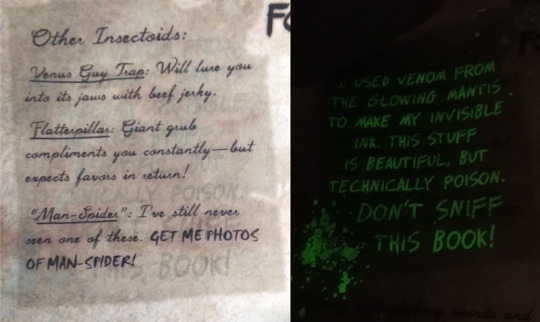 Other Insectoids:
Venus Guy Trap: Will lure you
into its jaws with beef jerky.
Flatterpillar: Giant grub
compliments you constantly—but
expects favors in return!
"Man-Spider": I've still never
seen one of these. GET ME PHOTOS
OF MAN-SPIDER!
BOOK!
I USED VENOM FROM
THE GLOWING MANTIS
TO MAKE MY INVISIBLE
INK. THIS STUFF
IS BEAUTIFUL, BUT
TECHNICALLY POISON.
DON'T SNIFF
THIS BOOK!